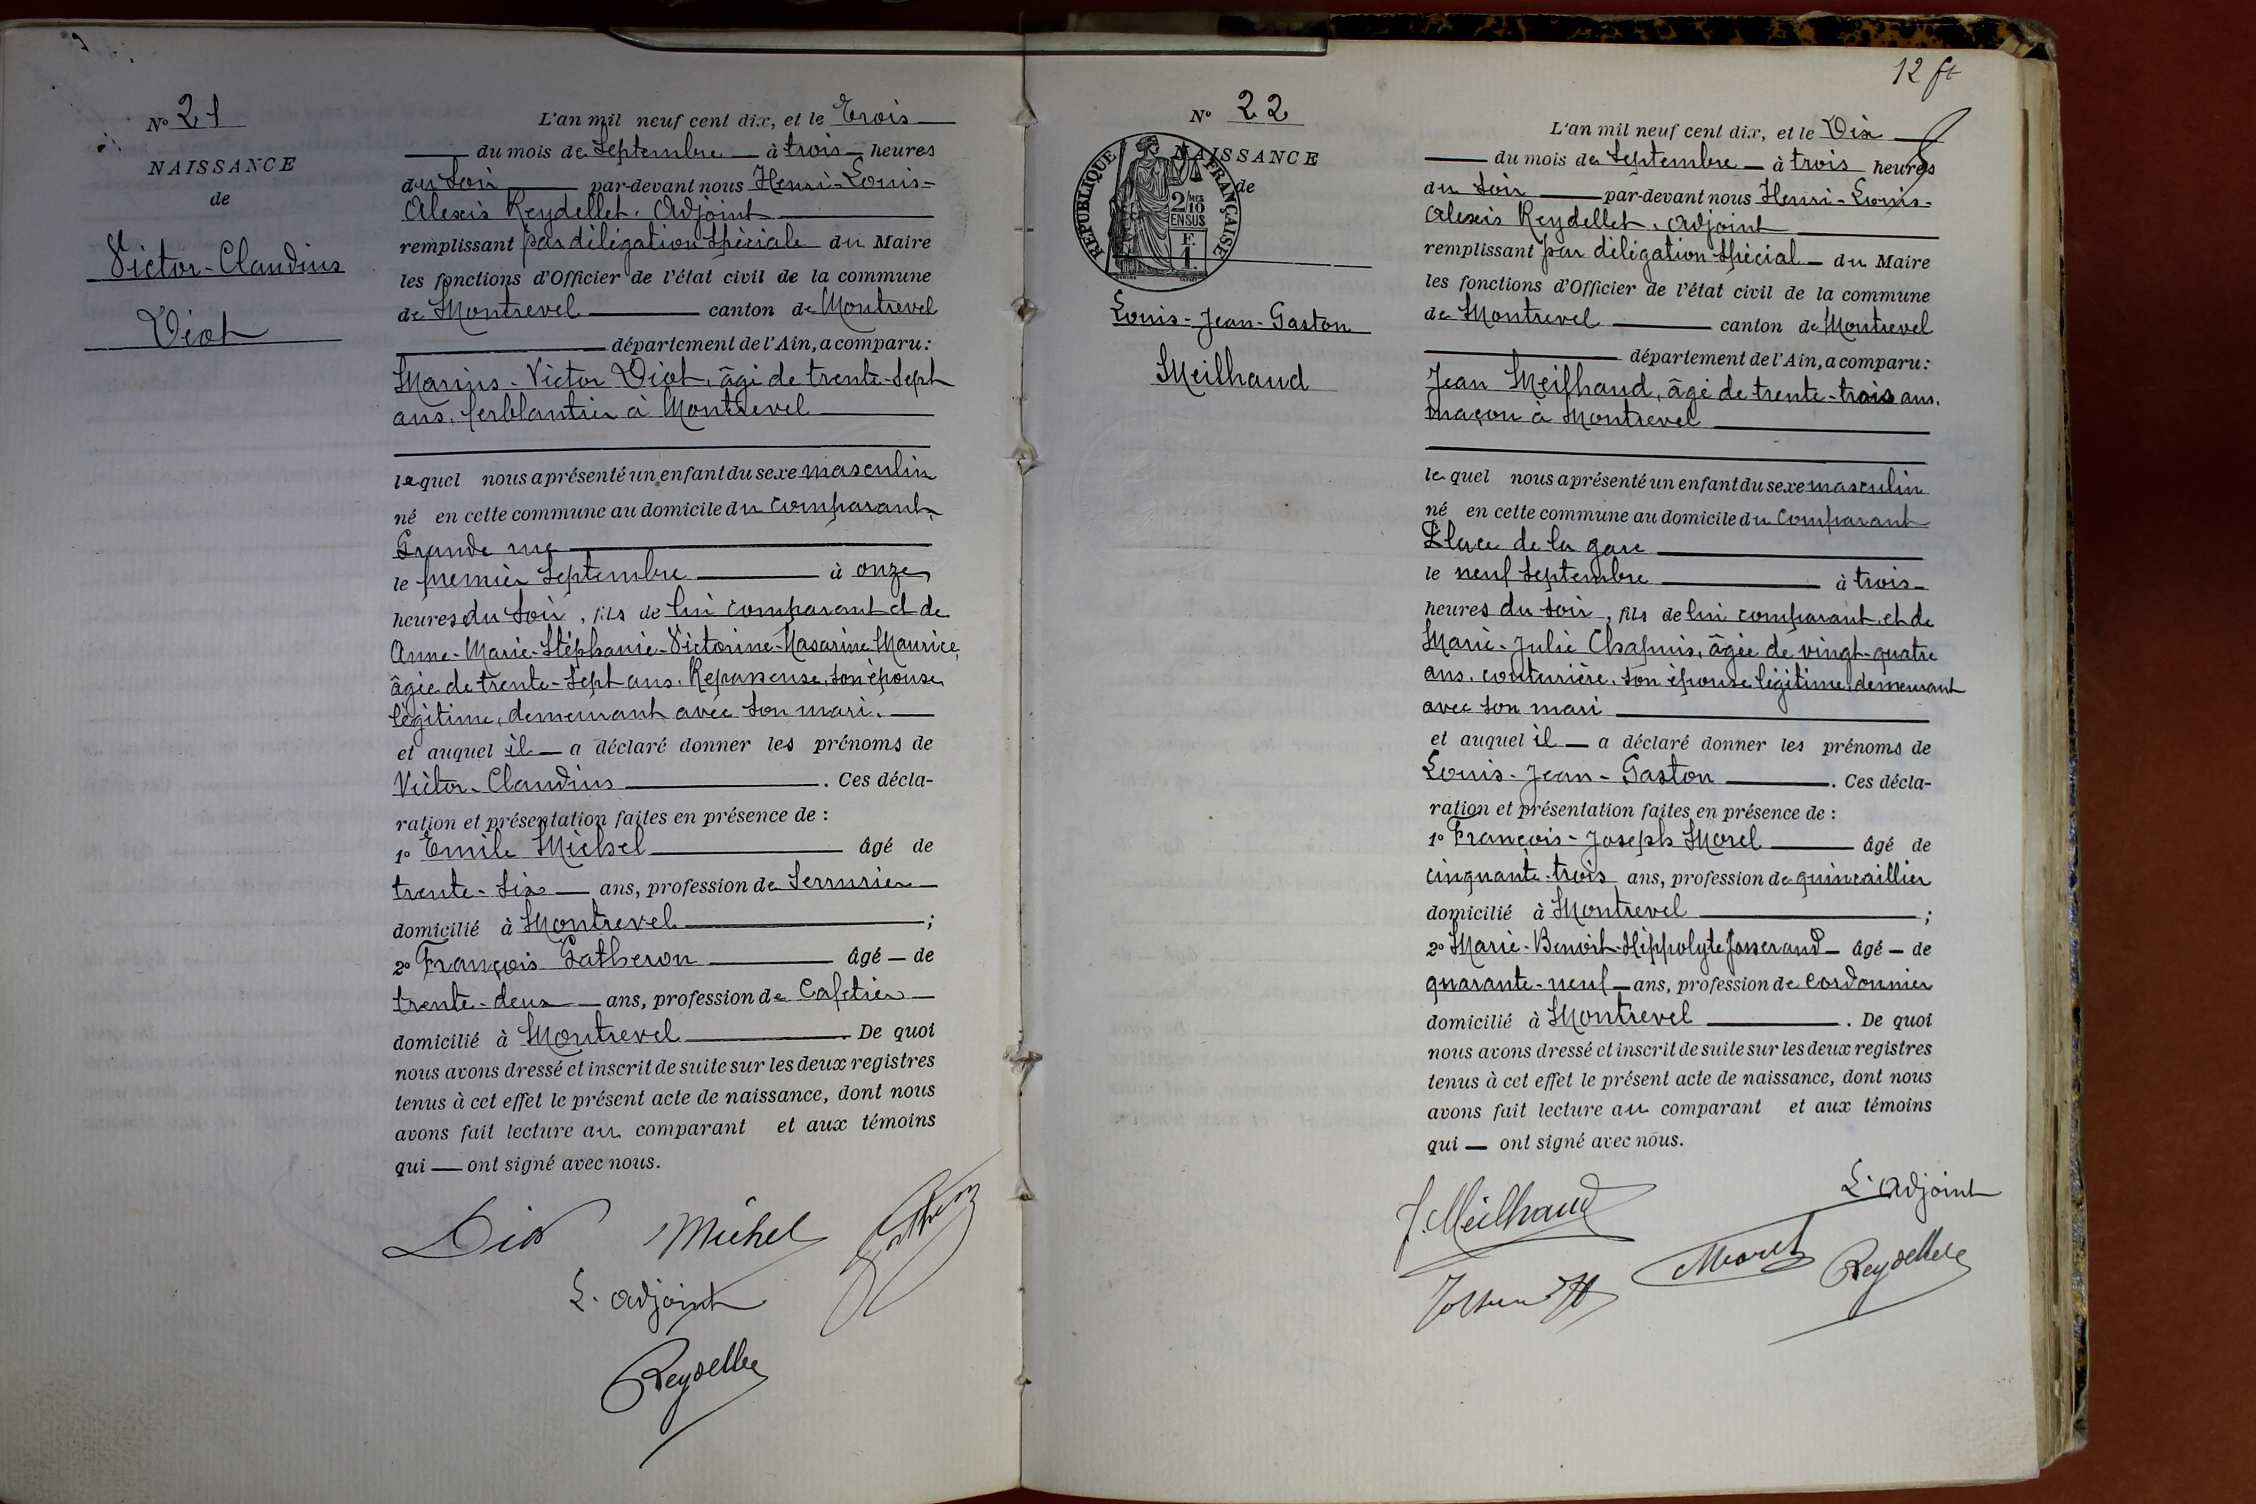 N° 21
NAISSANCE
de
Victor-Claudius
Diot
L'an mil neuf cent dix, et le Trois
du mois de Septembre à trois heures
du soir par-devant nous Henri-Louis-
Alexis Reydellet, Adjoint
remplissant par délégation spéciale du Maire
les fonctions d'Officier de l'état civil de la commune
de Montrevel canton de Montrevel
département de l'Ain, a comparu :
Marius-Victor Diot, âgé de trente-sept
ans, ferblantier à Montrevel
lequel nous a présenté un enfant du sexe masculin
né en cette commune au domicile du comparant,
Grande rue
le premier Septembre à onze
heures du soir, fils de lui comparant et de
Anne-Marie-Stéphanie-Victorine-Nasarine Maurice,
âgée de trente-sept ans, Repasseuse, son épouse
légitime, demeurant avec son mari.
et auquel il a déclaré donner les prénoms de
Victor-Claudius. Ces décla-
ration et présentation faites en présence de :
1° Emile Michel âgé de
trente-six ans, profession de Serrurier
domicilié à Montrevel ;
2° François Gatheron âgé de
trente-deux ans, profession de Cafetier
domicilié à Montrevel. De quoi
nous avons dressé et inscrit de suite sur les deux registres
tenus à cet effet le présent acte de naissance, dont nous
avons fait lecture au comparant et aux témoins
qui ont signé avec nous.
Diot Michel Gatheron
L'adjoint
Reydellet
12 ft
N° 22
NAISSANCE
de
RÉPUBLIQUE FRANÇAISE
2/10
EN SUS
F.
1.
Louis-Jean-Gaston
Meilhaud
L'an mil neuf cent dix, et le Dix
du mois de Septembre à trois heures
du soir par-devant nous Henri-Louis-
Alexis Reydellet, adjoint
remplissant par délégation spécial du Maire
les fonctions d'Officier de l'état civil de la commune
de Montrevel canton de Montrevel
département de l'Ain, a comparu :
Jean Meilhaud, âgé de trente-trois ans,
maçon à Montrevel
lequel nous a présenté un enfant du sexe masculin
né en cette commune au domicile du comparant
Place de la gare
le neuf Septembre à trois
heures du soir, fils de lui comparant et de
Marie-Julie Chapuis, âgée de vingt-quatre
ans, couturière, son épouse légitime, demeurant
avec son mari
et auquel il a déclaré donner les prénoms de
Louis-Jean-Gaston. Ces décla-
ration et présentation faites en présence de :
1° François-Joseph Morel âgé de
cinquante-trois ans, profession de quincaillier
domicilié à Montrevel ;
2° Marie-Benoit-Hippolyte Josserand âgé de
quarante-neuf ans, profession de cordonnier
domicilié à Montrevel. De quoi
nous avons dressé et inscrit de suite sur les deux registres
tenus à cet effet le présent acte de naissance, dont nous
avons fait lecture au comparant et aux témoins
qui ont signé avec nous.
L'adjoint
J. Meilhaud Morel Reydellet